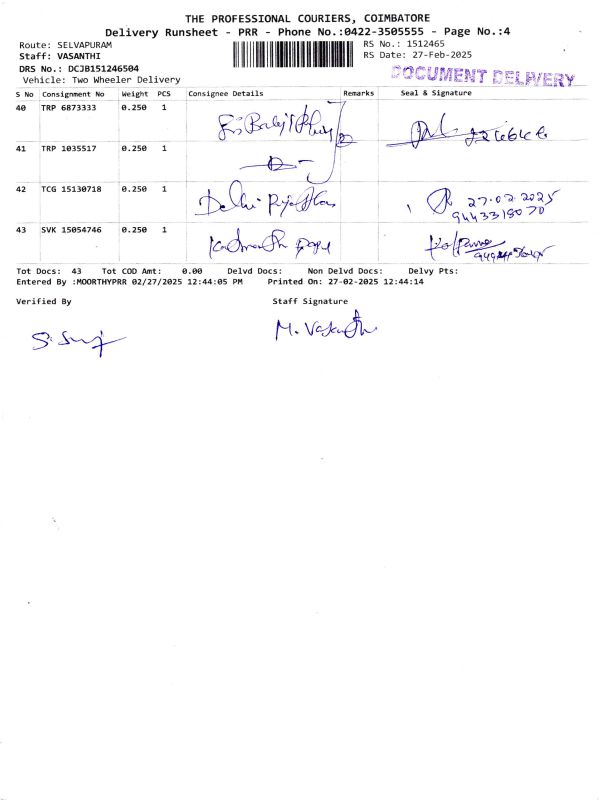 THE PROFESSIONAL COURIERS, COIMBATORE
Delivery Runsheet - PRR - Phone No.:0422-3505555 - Page No.:4
Route: SELVAPURAM
RS No.: 1512465
Staff: VASANTHI
RS Date: 27-Feb-2025
DRS No.: DCJB151246504
DOCUMENT DELIVERY
Vehicle: Two Wheeler Delivery
S No Consignment No Weight PCS Consignee Details Remarks Seal & Signature
40 TRP 6873333 0.250 1
Sri Balaji
41 TRP 1035517 0.250 1
42 TCG 15130718 0.250 1
Delhi 27.02.2025
9443318070
43 SVK 15054746 0.250 1
Tot Docs: 43 Tot COD Amt: 0.00 Delvd Docs: Non Delvd Docs: Delvy Pts:
Entered By :MOORTHYPRR 02/27/2025 12:44:05 PM Printed On: 27-02-2025 12:44:14
Verified By Staff Signature
M. Vasanthi